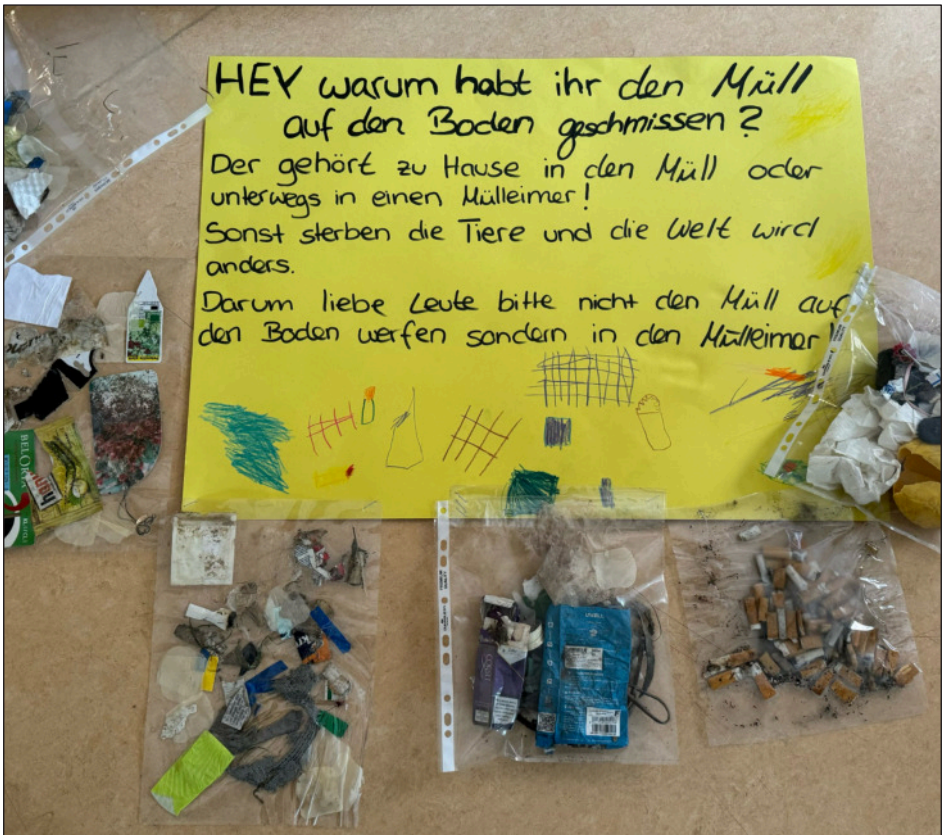 HEY warum habt ihr den Müll
auf den Boden geschmissen?
Der gehört zu Hause in den Müll oder
unterwegs in einen Mülleimer!
Sonst sterben die Tiere und die Welt wird
anders.
Darum liebe Leute bitte nicht den Müll auf
den Boden werfen sondern in den Mülleimer!